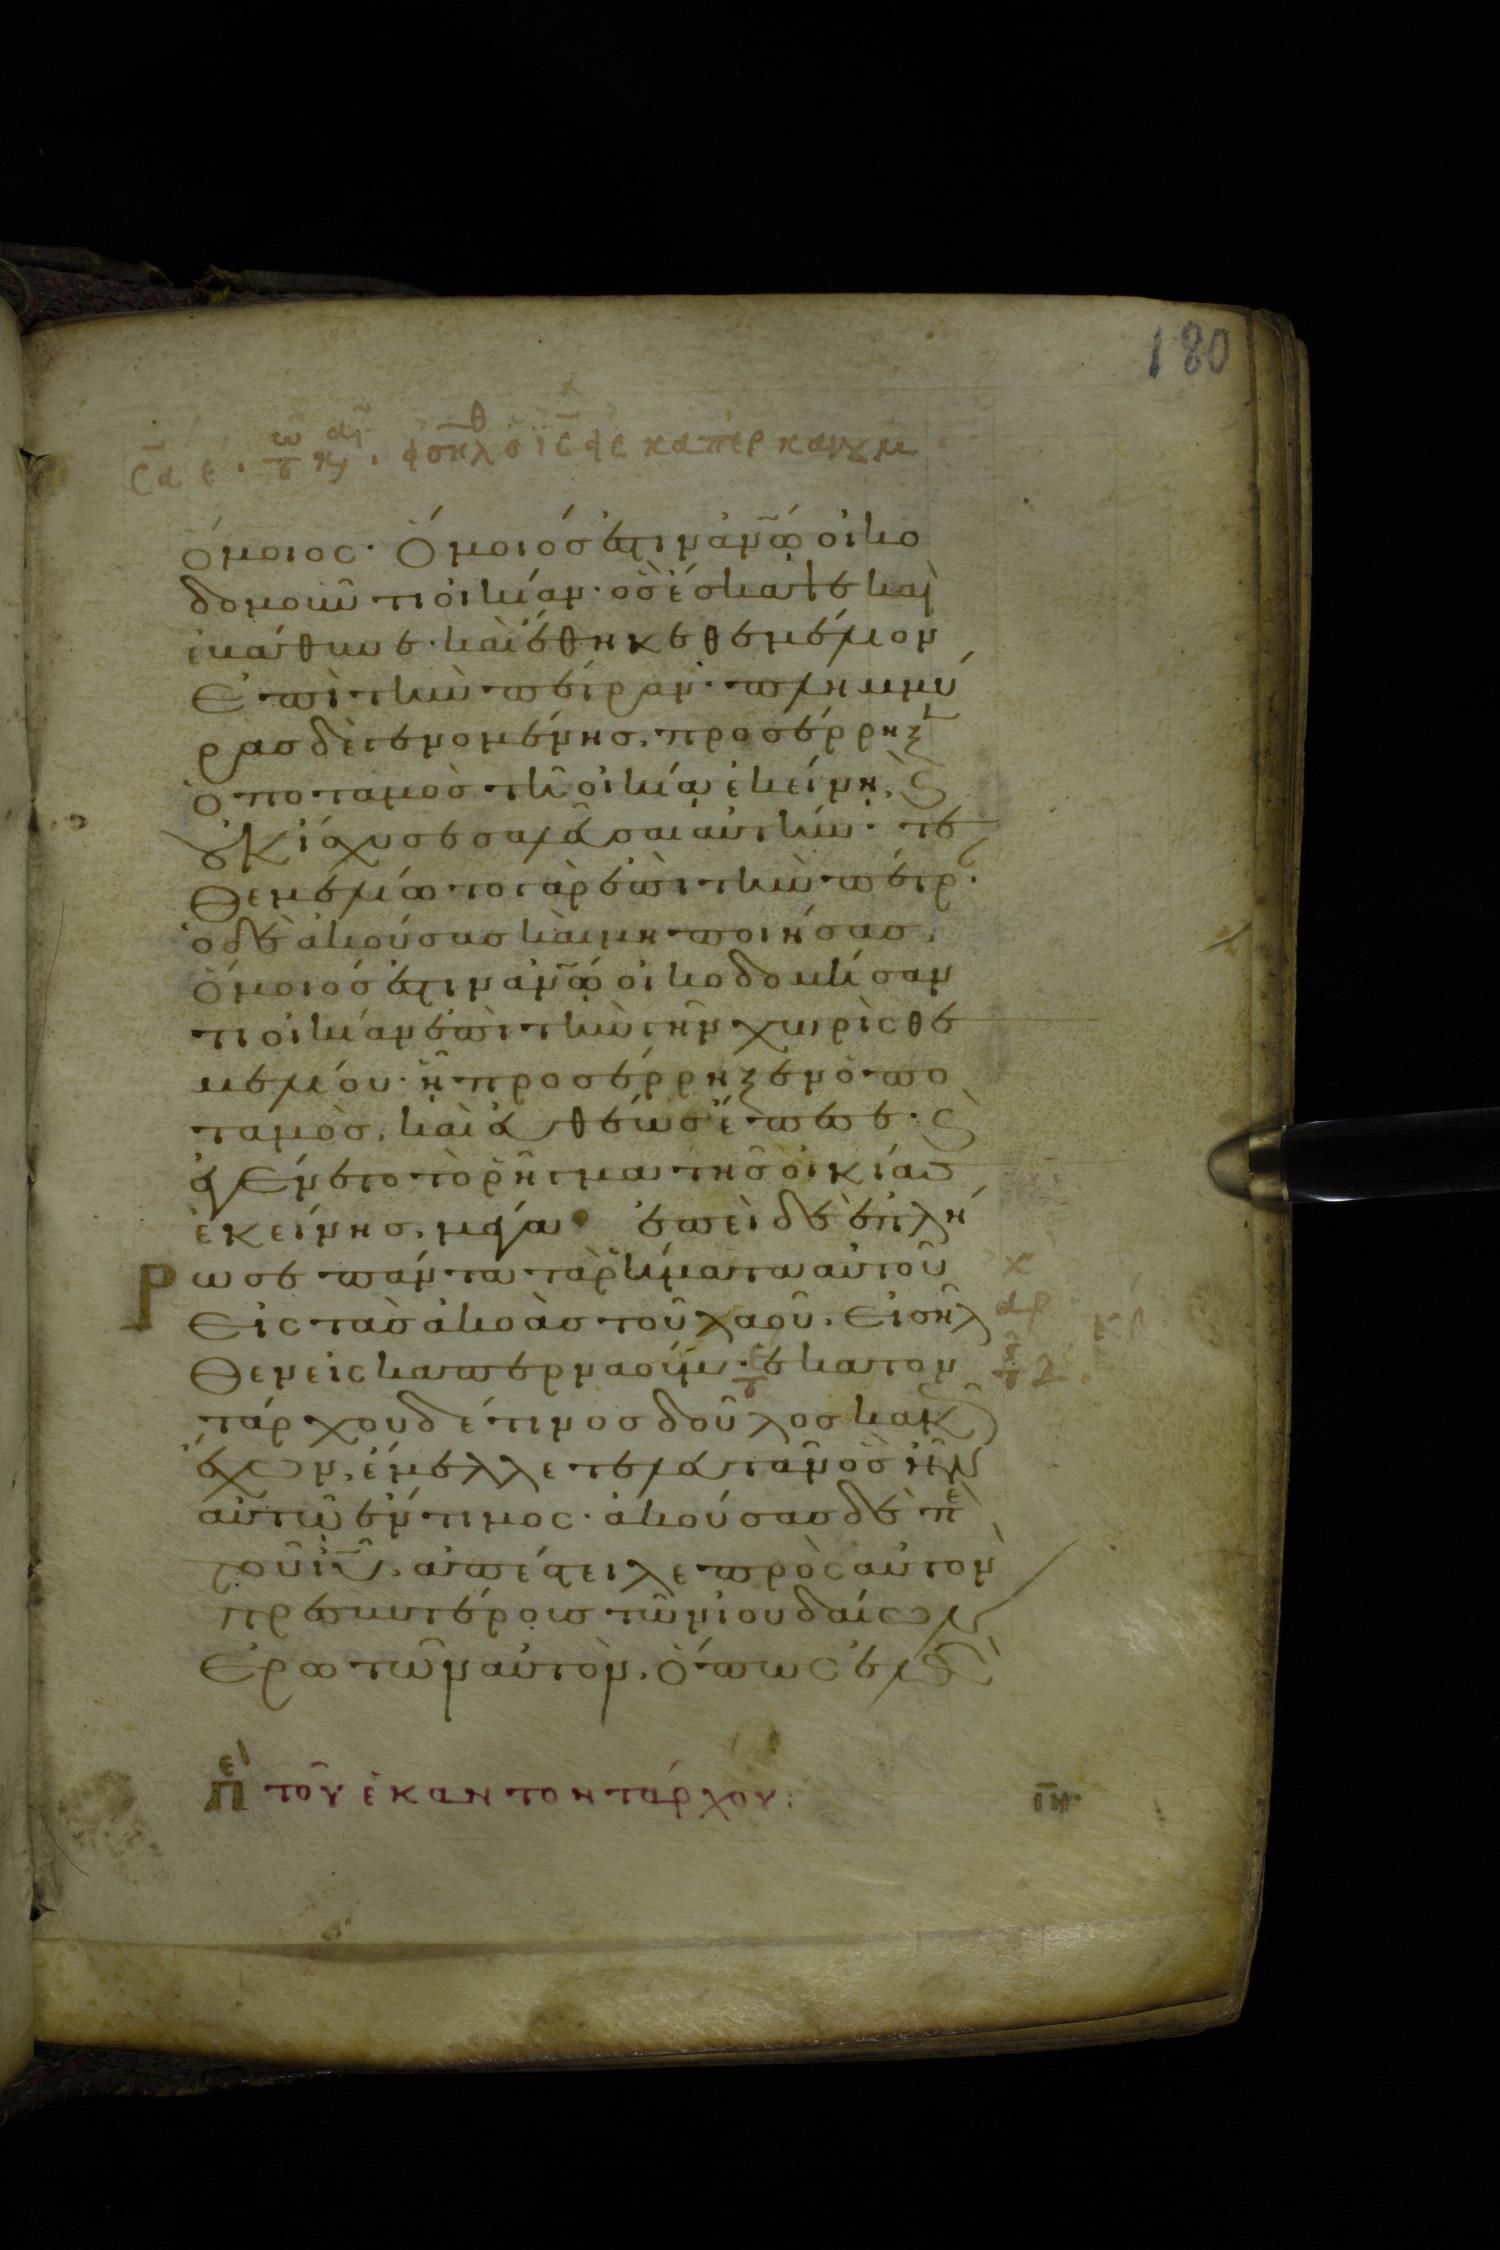 180
ὅμοιος· Ὅμοιός ἐστιν ἀν̅ω̅ οἰκο
δομοῦντι οἰκίαν· ὃς ἔσκαψε καὶ
ἐβάθυνε· καὶ ἔθηκε θεμέλιον
Ἐπὶ τὴν πέτραν· πλημμύ
ρας δὲ γενομένης, προσέρρηξ
ὁ ποταμὸς τῆ οἰκία ἐκείνη, ϗ
οὐκ ἴσχυσε σαλεῦσαι αὐτήν· τε
θεμελίωτο γὰρ ἐπὶ τὴν πέτρ·
ὁ δὲ ἀκούσας καὶ μὴ ποιήσας,
Ὅμοιός ἐστιν ἀν̅ω̅ οἰκοδομήσαν
τι οἰκίαν ἐπὶ τὴν γῆν χωρὶς θε
μελίου· ἧ προσέρρηξεν ὁ πο
ταμὸς, καὶ εὐθέως ἔπεσε· ϗ
ἐγένετο τὸ ῥῆγμα τῆς οἰκίας
ἐκείνης, μέγα· ἐπεὶ δὲ ἐπλή
Ρωσε πάντα τὰ ῥήματα αὐτοῦ
Εἰς τὰς ἀκοὰς τοῦ λαοῦ, Εἰσῆλ
Θεν εἰς καπερναούμ· ἑκατον
τάρχου δέ τινος δοῦλος κακῶ
ἔχων, ἔμελλε τελευτᾶν ὃς ἦν
αὐτῶ ἔντιμος· ἀκούσας δὲ πε
τοῦ ι̅υ̅, ἀπέστειλε πρὸς αὐτὸν
πρεσβυτέρους τῶν ἰουδαίων
Ἐρωτῶν αὐτὸν, ὅπως ἐλθὼ
πε τοῦ ἑκαντοντάρχου:
ι̅η̅·